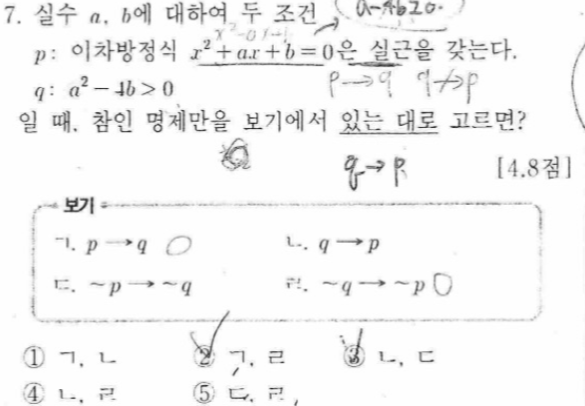 7. 실수 a, b에 대하여 두 조건
a²-4b≥0.
p: 이차방정식 x²+ax+b=0은 실근을 갖는다.
q: a²-4b>0
p→q q↛p
일 때, 참인 명제만을 보기에서 있는 대로 고르면?
q→p
[4.8점]
보기
ㄱ. p→q ○ ㄴ. q→p
ㄷ. ~p→~q ㄹ. ~q→~p ○
① ㄱ, ㄴ ② ㄱ, ㄹ ③ ㄴ, ㄷ
④ ㄴ, ㄹ ⑤ ㄷ, ㄹ